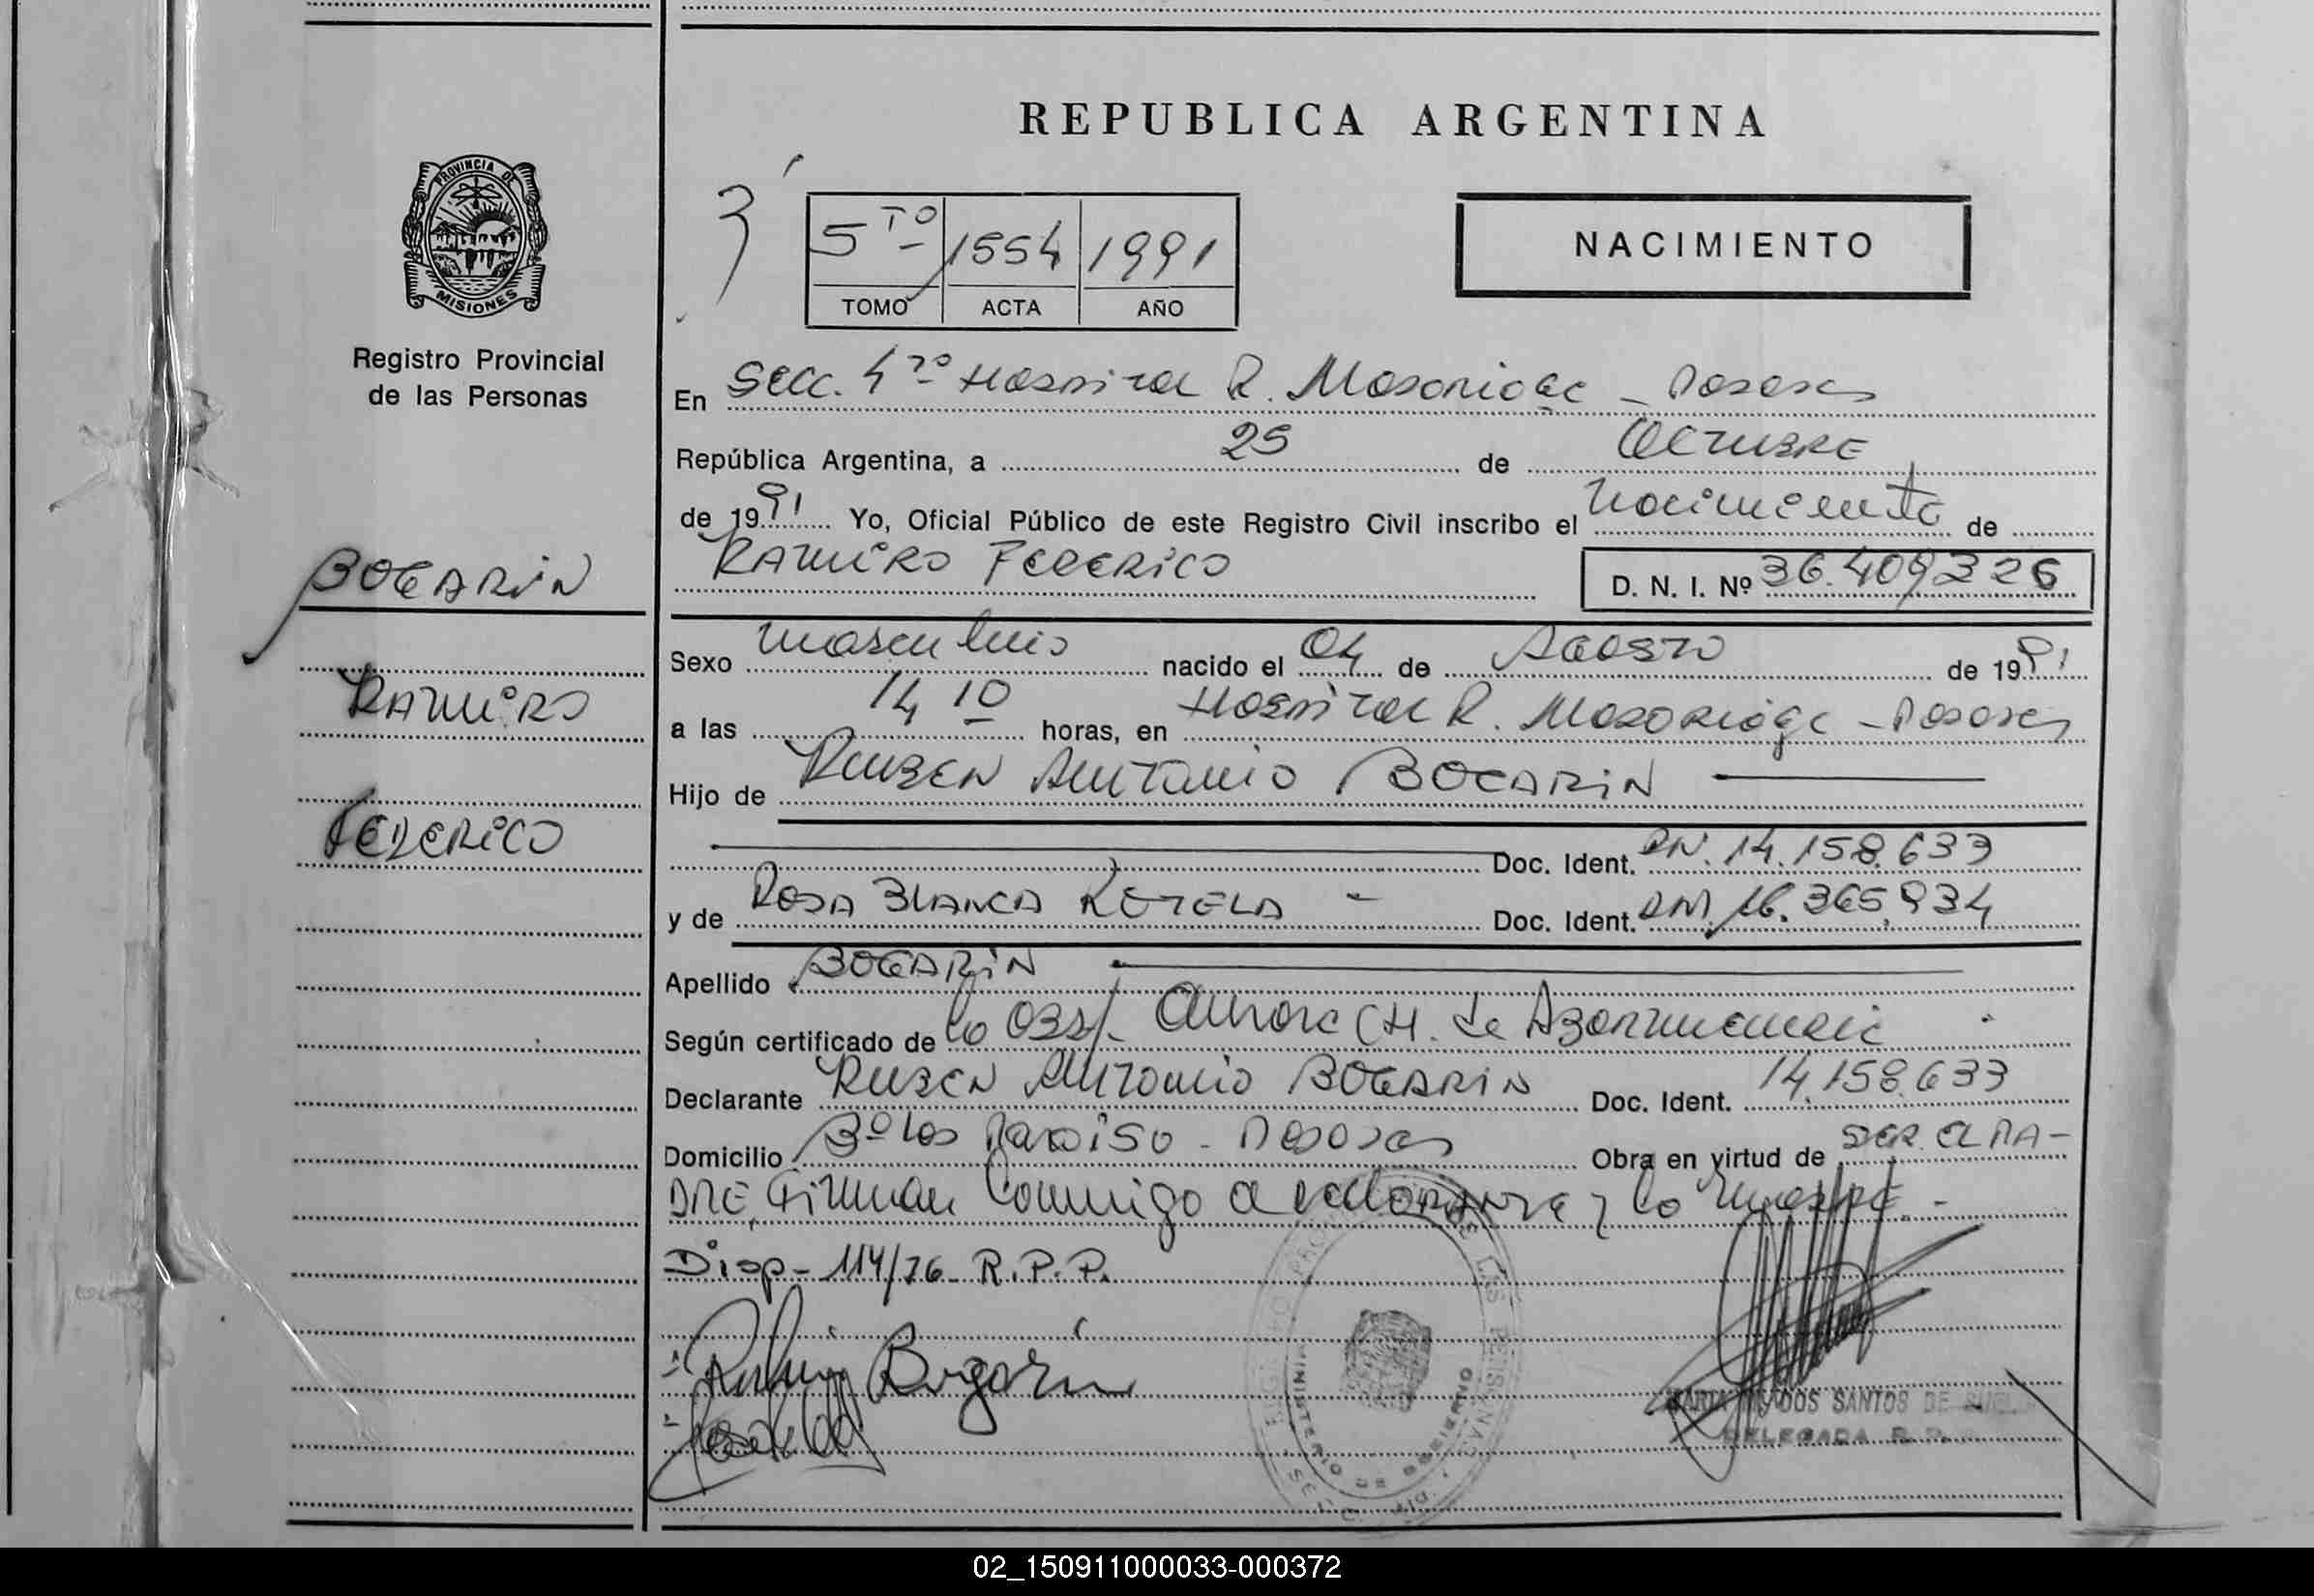 REPUBLICA ARGENTINA
PROVINCIA DE
MISIONES
Registro Provincial
de las Personas
5TO 1554 1991
TOMO ACTA AÑO
NACIMIENTO
En Secc. 4ta Hospital R. Madariaga - Posadas
República Argentina, a 25 de Octubre
de 1991 Yo, Oficial Público de este Registro Civil inscribo el nacimiento de
Ramiro Federico D. N. I. Nº 36.409.326
BOGARIN
Ramiro
Federico
Sexo masculino nacido el 04 de Agosto de 1991
a las 14 10 horas, en Hospital R. Madariaga - Posadas
Hijo de Ruben Antonio BOGARIN
Doc. Ident. DN. 14.158.633
y de Rosa Blanca - Doc. Ident. DNI. 16.365.934
Apellido BOGARIN
Según certificado de la Obst. Aurora CH. de
Declarante Ruben Antonio BOGARIN Doc. Ident. 14.158.633
Domicilio Bº Los Paraiso - Posadas Obra en virtud de ser el pa-
dre, Firman conmigo el declarante y la madre. -
Disp- 114/76- R.P.P.
Bogarin
MINISTERIO DE GOBIERNO
DOS SANTOS DE
DELEGADA R. P.
02_150911000033-000372